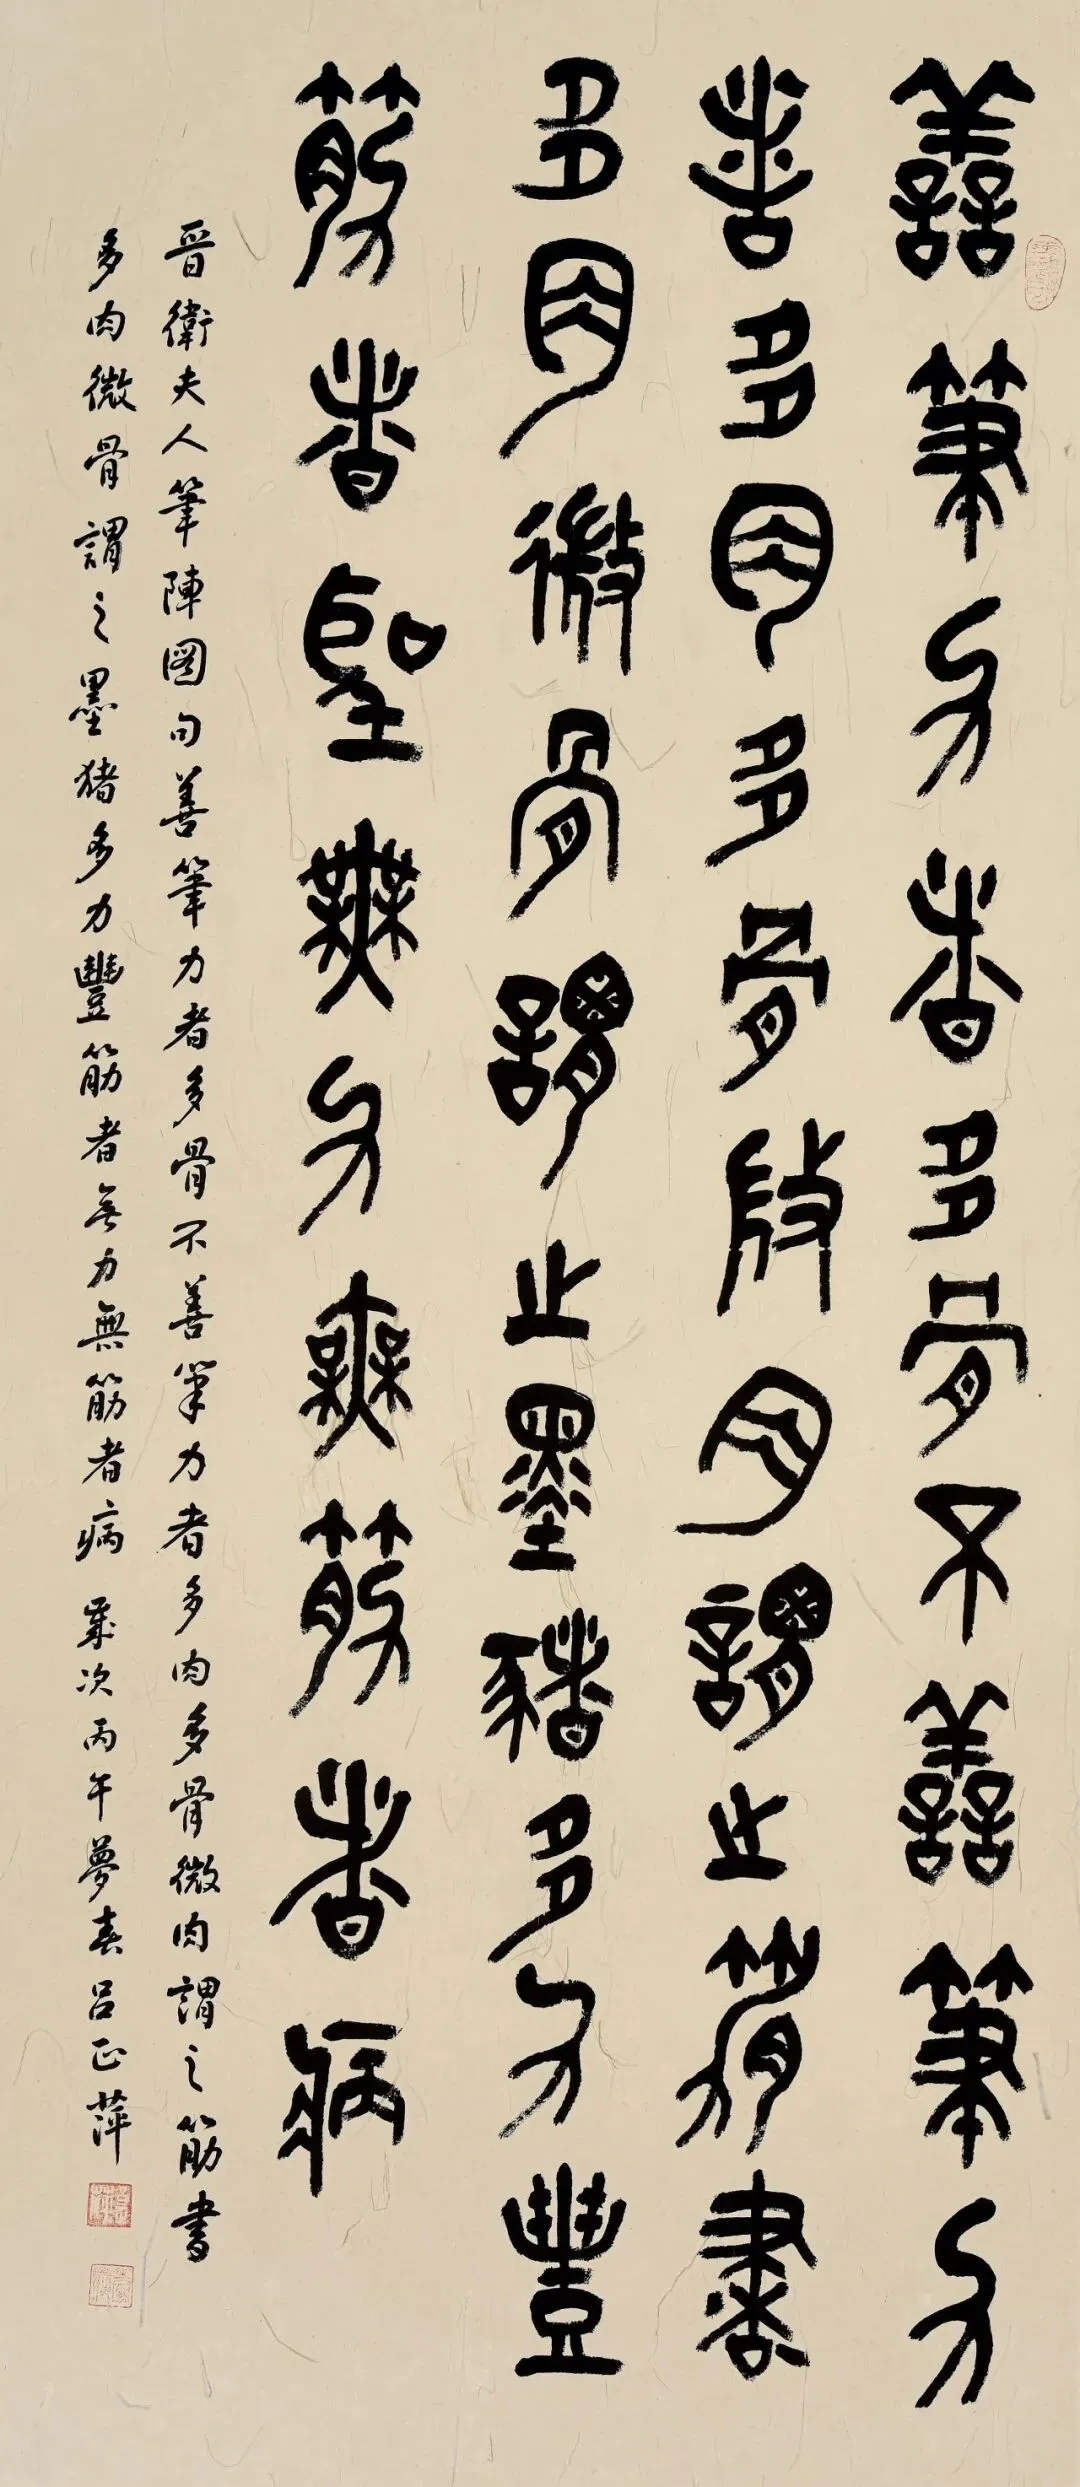 善筆力者多骨不善筆力
者多肉多骨微肉謂之筋書
多肉微骨謂之墨豬多力豐
筋者聖無力無筋者病
晉衛夫人筆陣圖句善筆力者多骨不善筆力者多肉多骨微肉謂之筋書
多肉微骨謂之墨猪多力豐筋者無力無筋者病 歲次丙午夢春呂正萍